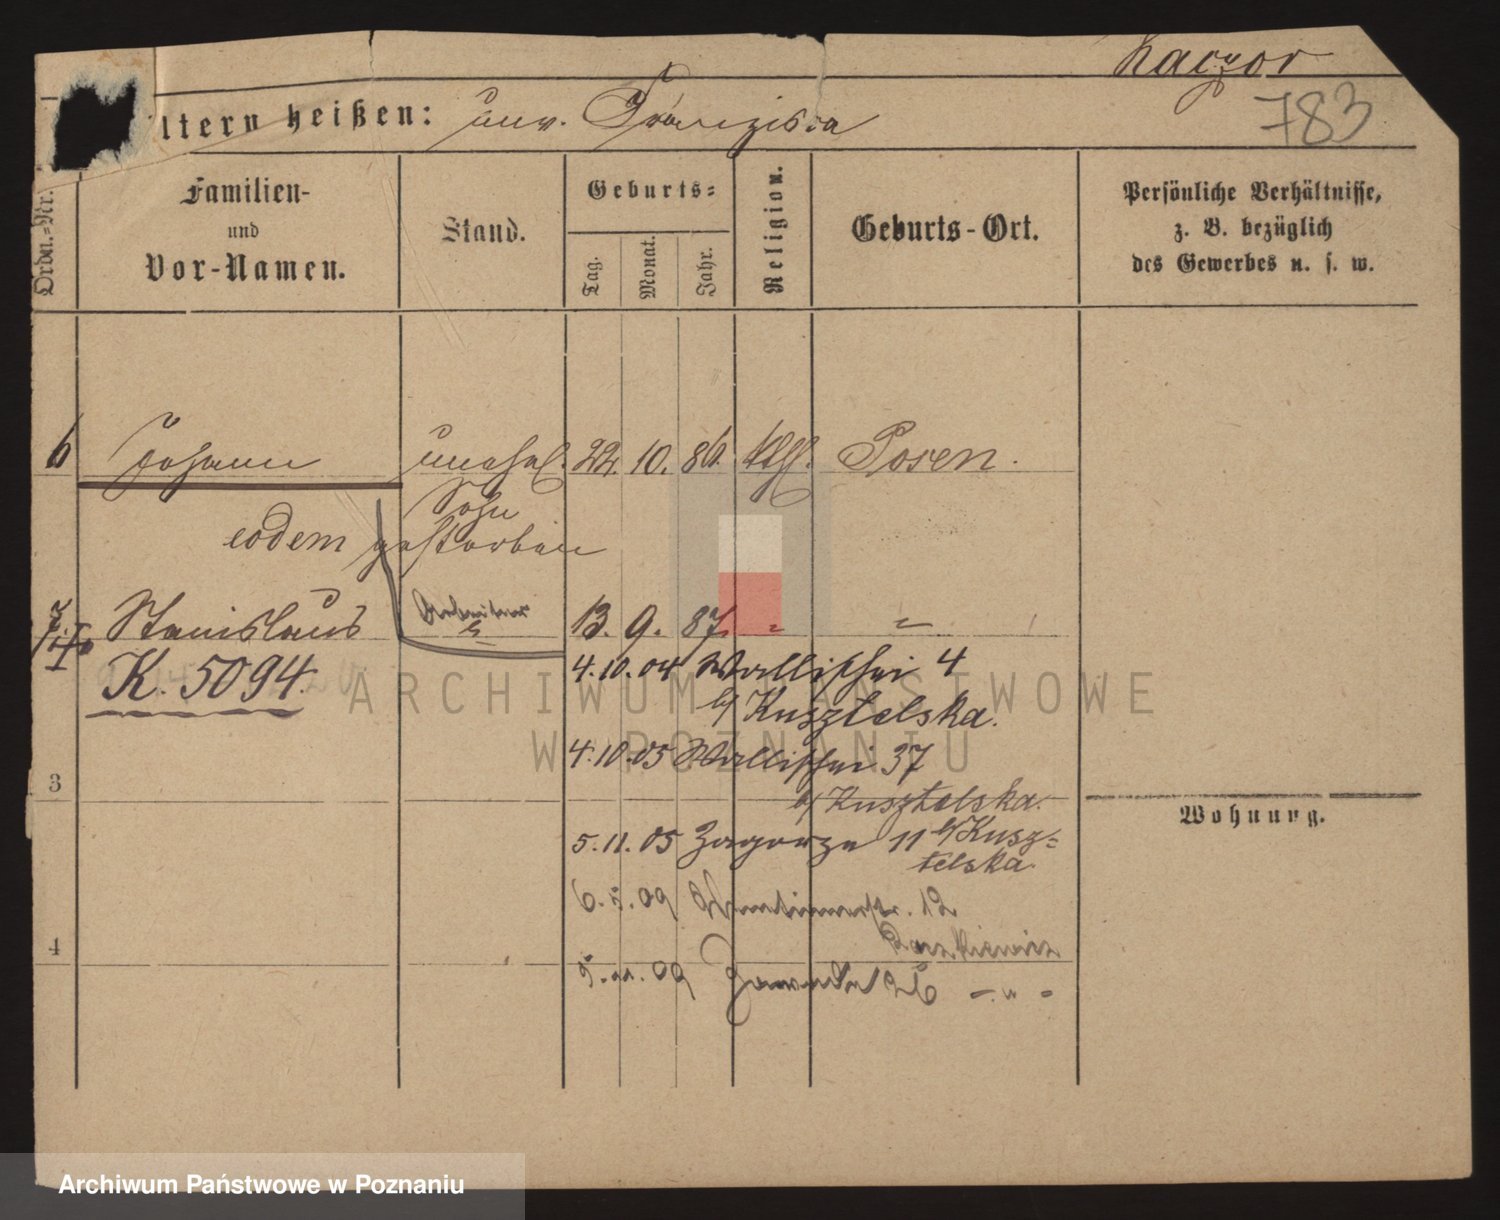 Kaczor
783
ltern heißen: unv. Franziska
Ordn.-Nr.
Familien-
und
Vor-Namen.
Stand.
Geburts-
Tag.
Monat.
Jahr.
Religion.
Geburts-Ort.
Persönliche Verhältnisse,
z. B. bezüglich
des Gewerbes u. s. w.
6 Johann unehel. 22. 10. 86. kth. Posen.
Sohn
eodem gestorben
Stanislaus Arbeiter 13. 9. 87. " "
K. 5094.
4.10.04 Wallischei 4
b/ Kusztelska.
4.10.05 Wallischei 37
b/ Kusztelska.
3
Wohnung.
5.11.05 Zagorze 11 b/ Kusz-
telska.
6.5.09 12
4
5.11.09 - " -
ARCHIWUM PAŃSTWOWE
W POZNANIU
Archiwum Państwowe w Poznaniu